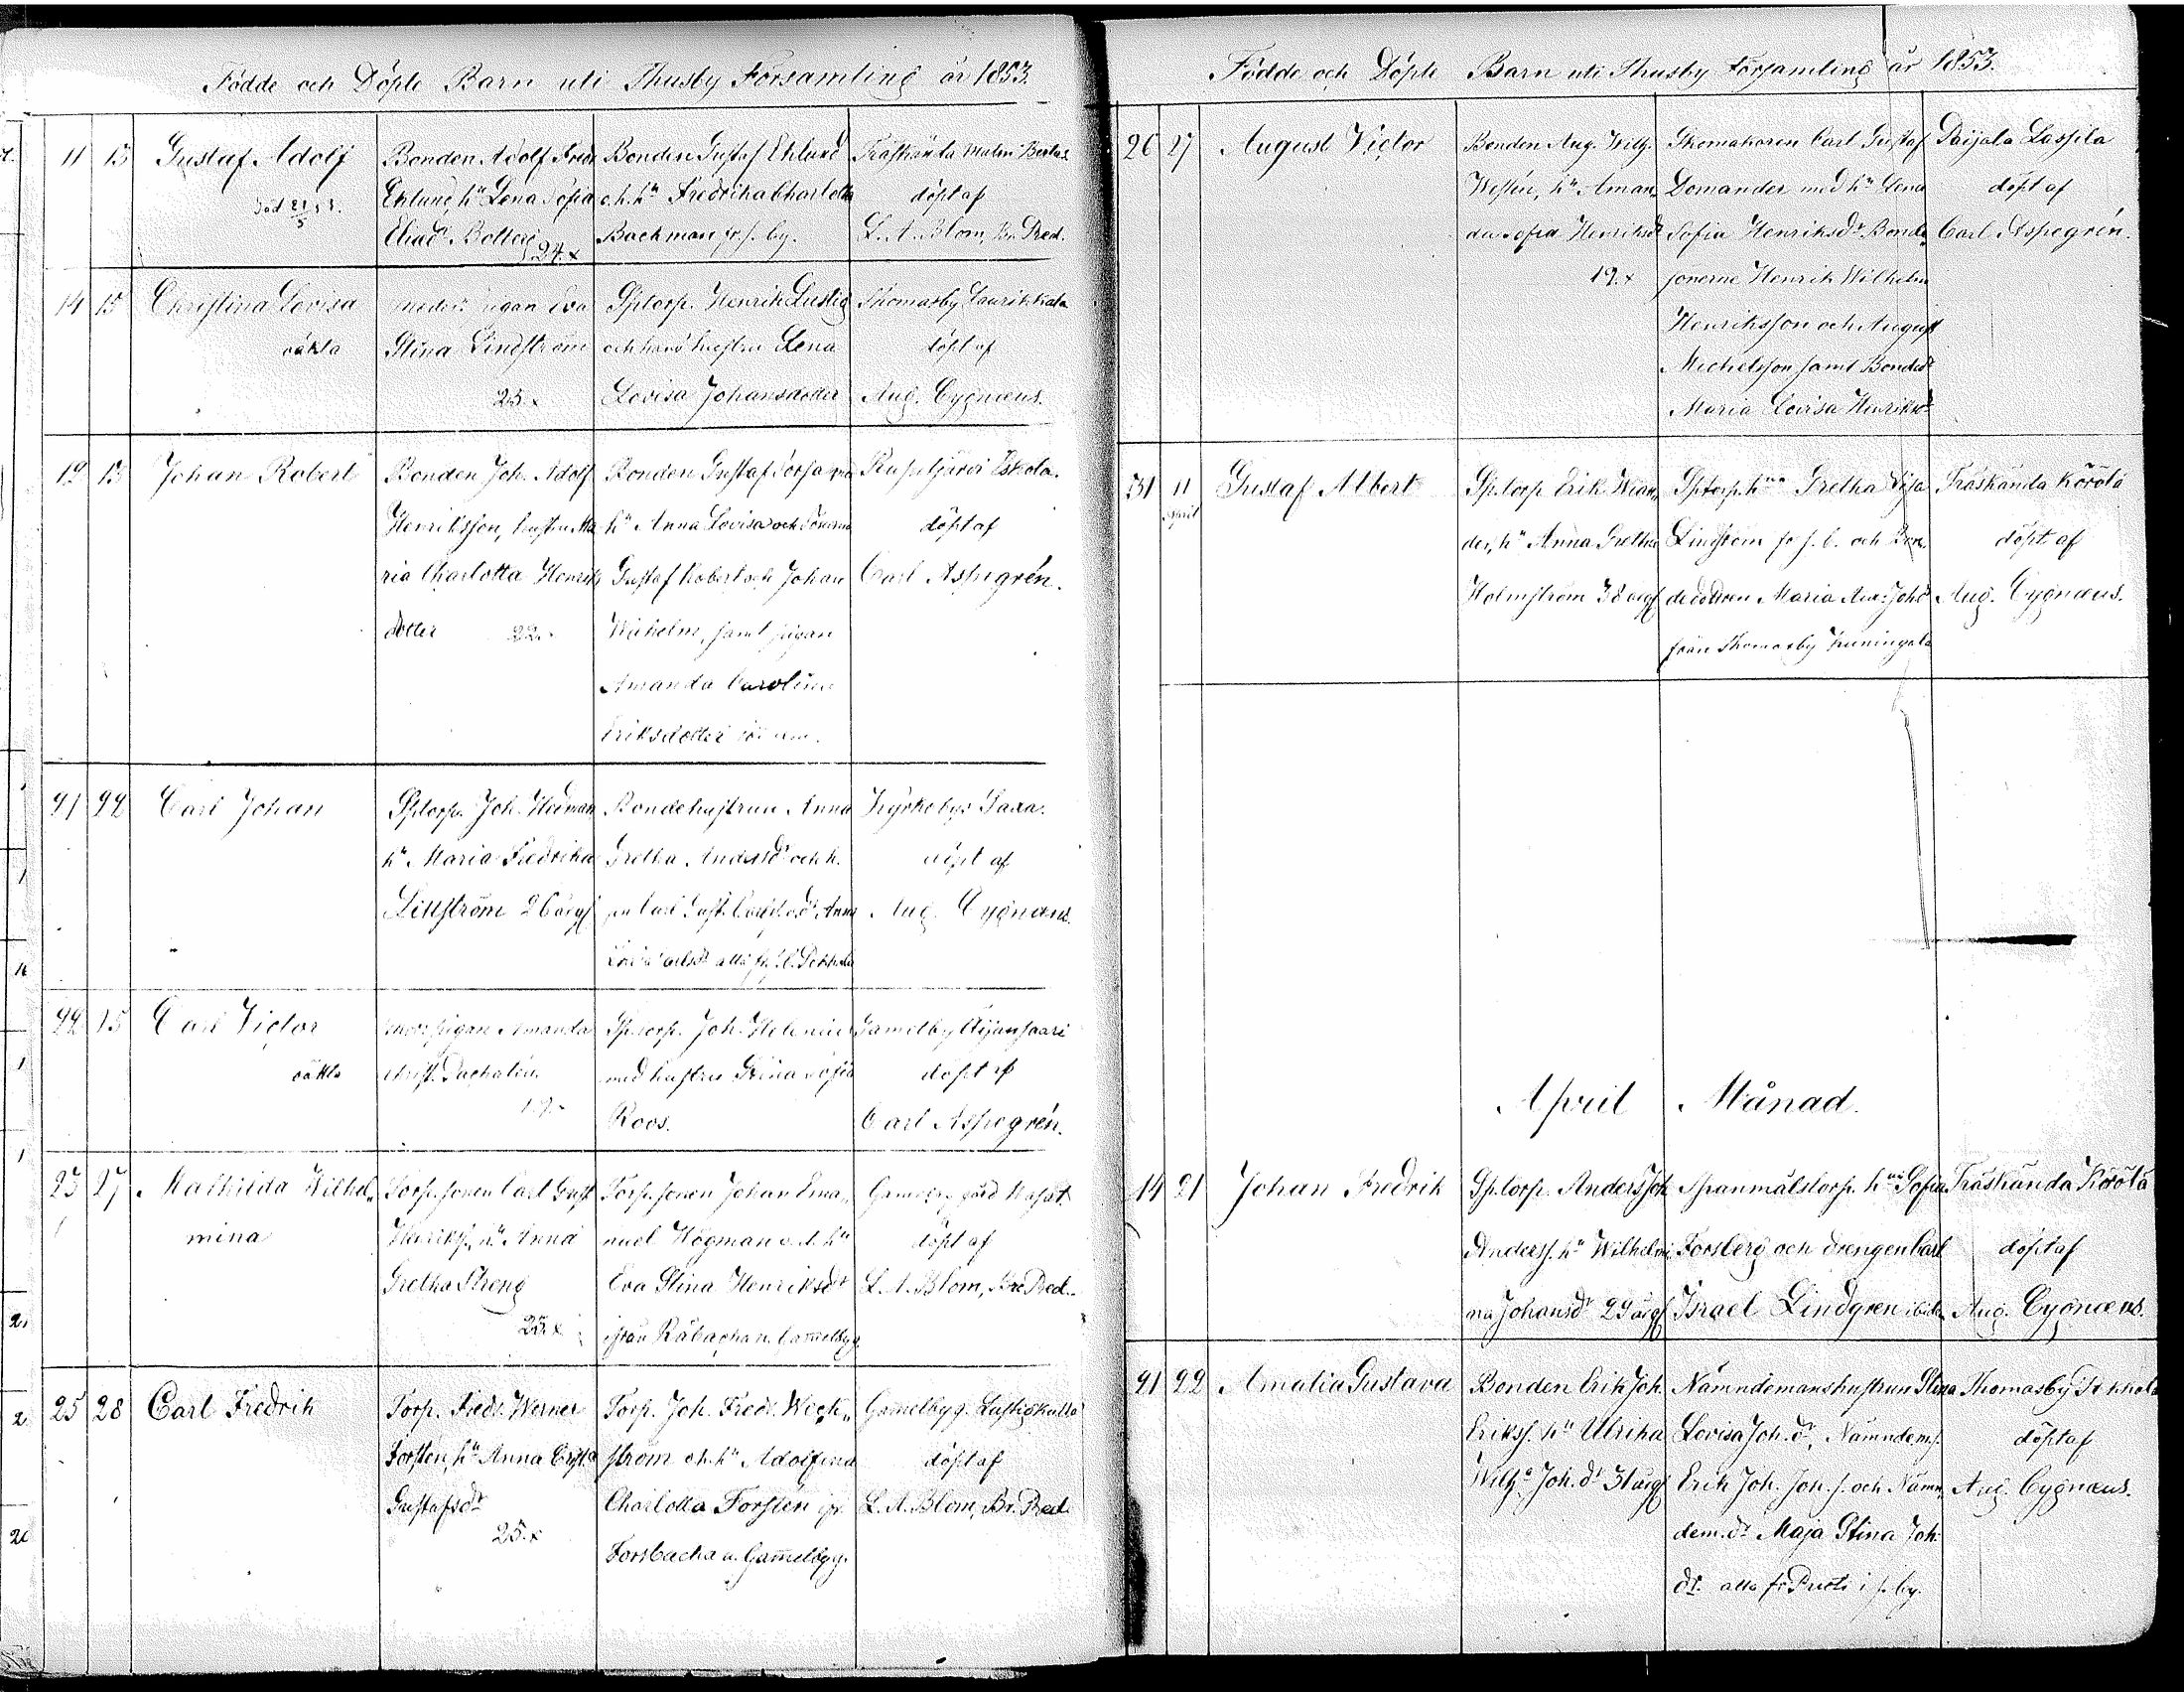 Födde och Döpte Barn uti Thusby Församling år 1853.
11 13 Gustaf Adolf
död 21/5 53.
Bonden Adolf Fredr.
Ehlund, hn Lena Sofia
24.x
Bonden Gustaf Ehlund
o.h. hn Fredrika Charlotta
Backman fr. s. by.
Träskända
döpt af
L. A. Blom, Br. Pred.
14 15 Christina Lovisa
oäkta
pigan Eva
Stina Lindström
25.x
Sptorp. Henrik Lustig
och hans hustru Lena
Lovisa Johansdotter
Thomasby
döpt af
Aug. Cygnæus.
12 13 Johan Robert
Bonden Joh. Adolf
Henriksson, hustru Ma
ria Charlotta Henriks
dotter 22.
Bonden Gustaf
hn Anna Lovisa och
Gustaf Robert och Johan
Wilhelm, samt pigan
Amanda Carolina
Eriksdotter
Ruskijärvi Eskola.
döpt af
Carl Aspegrén.
21 22 Carl Johan
Sptorp. Joh. Hedman
hn Maria Fredrika
Littström 26 årg.
Bondehustrun Anna
Gretha Andersdr och
Kyrkoby Saxa.
döpt af
Aug. Cygnæus.
22 25 Carl Victor
oäkta
pigan Amanda
19.x
Sptorp. Joh. Helenius
med hustru Stina Sofia
Roos.
Gamelby
döpt af
Carl Aspegrén.
23 27 Mathilda Wilhel„
mina
Torp.sonen Carl Gust.
Henriks. hn Anna
Gretha Streng
25.x
Torp.sonen Johan Ema„
nuel Högman o.h. hn
Eva Stina Henriksdr
döpt af
L. A. Blom, Br. Pred.
25 28 Carl Fredrik
Torp. Fredr. Werner
Forstén, hn Anna Crist.a
Gustafsdr
25.x
Torp. Joh. Fredr. Wick„
ström o.h. hn Adolfina
Charlotta Forstén fr.
Forsbacka u. Gamelbyg.
Gamelbyg. Lustigkulla
döpt af
L. A. Blom, Br. Pred.
Födde och Döpte Barn uti Thusby Församling år 1853.
26 27 August Victor
Bonden Aug. Wilh.
Westén, hn Aman„
da Sofia Henriksdr
19.x
Skomakaren Carl Gustaf
Lomander med hn Lena
Sofia Henriksdr Bonde„
sönerne Henrik Wilhelm
Henriksson och August
Michelsson samt Bondedr
Maria Lovisa Henriksdr
Paijala Lassila
döpt af
Carl Aspegrén.
31 11 April Gustaf Albert
Sp.torp Erik Wean„
der, hn Anna Gretha
Holmström 38 årg.
Sptorp.hun Gretha Lisa
Lindström fr s. b. och Bon„
dedottren Maria Joh.dr
från Thomasby
Träskända Körölä
döpt af
Aug. Cygnæus.
April Månad.
14 21 Johan Fredrik
Sp.torp. Anders Joh.
Anders. hn Wilhelmi
na Johansdr 29 årg.
Spanmålstorp. hun Sofia
Forsberg och drengen Carl
Israel Lindgren ibid.
Träskända Körölä
döpt af
Aug. Cygnæus.
21 22 Amalia Gustava
Bonden Erik Joh.
Eriks. hn Ulrika
Wilha Joh.dr 31 årg.
Nämndemanshustrun Stina
Lovisa Joh.dr, Nämndem.s.
Erik Joh. Joh.s. och Nämn„
dem.dr Maja Stina Joh.
dr. alla fr. i s. by.
Thomasby
döpt af
Aug. Cygnæus.